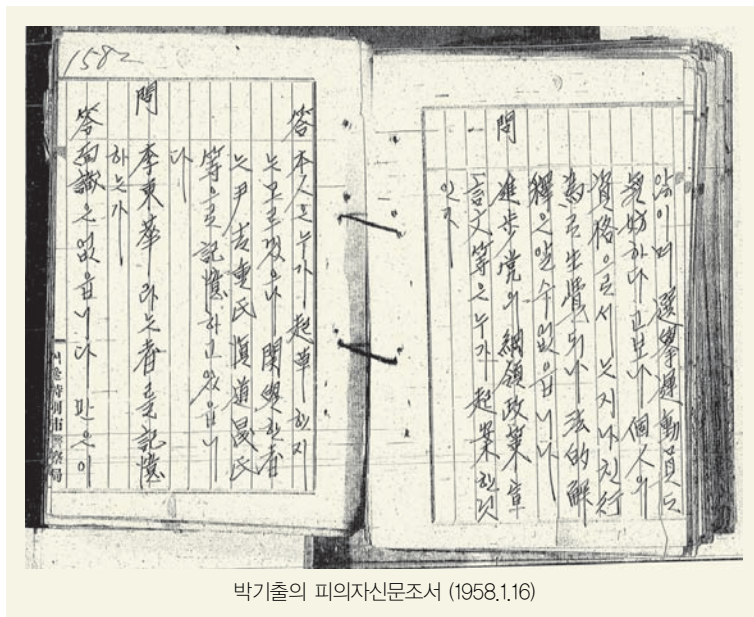 않이며 選擧運動員도
無妨하다고보나 個人의
資格으로서는지나친行
爲로生覺되나 法的解
釋은알수없읍니다
問 進步党의綱領政策宣
言文等은누가起案한것
인가
1582
答 本人은누가起草한지
는모르겠으나 関與한者
는尹吉重氏 愼道晟氏
等으로記憶하고있읍니
다
問 李東華라는者를記憶
하는가
答 面識은없읍니다 만은이
서울特別市警察局
박기출의 피의자신문조서 (1958.1.16)